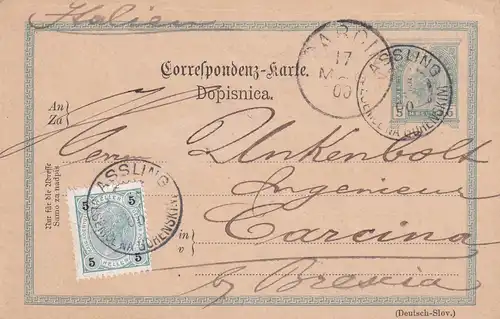 Italien
GARDONE
17
00
ASSLING
JESENICE NA GORENSKEM
00
5 5
Correspondenz-Karte.
Dopisnica.
An
Za
Herrn Unkenbolt
Ingenieur
in
v
Carcina
by Brescia
Nur für die Adresse
Samo za nadpis
ASSLING
JESENICE NA GORENSKEM
5 5
5 5
HELLER
(Deutsch-Slov.)